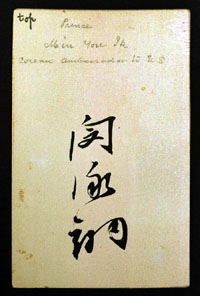 top
Prince
Min You Ik
Corean Ambassador to U S
閔
泳
翊